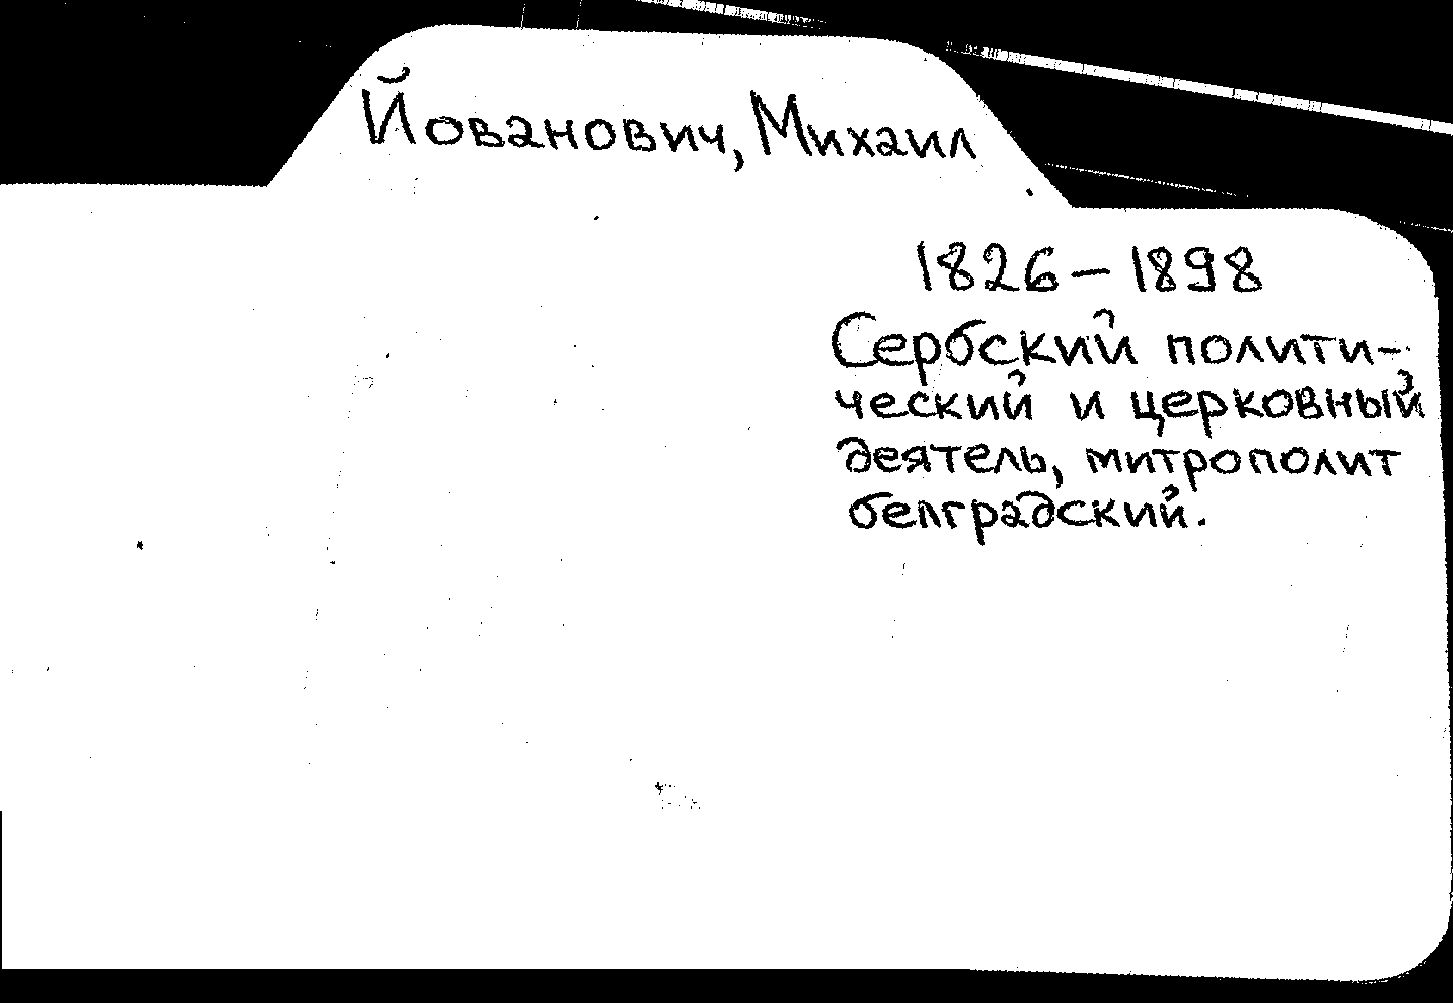 Йованович, Михаил
1826 – 1898
Сербский полити-
ческий и церковный
деятель, митрополит
белградский.